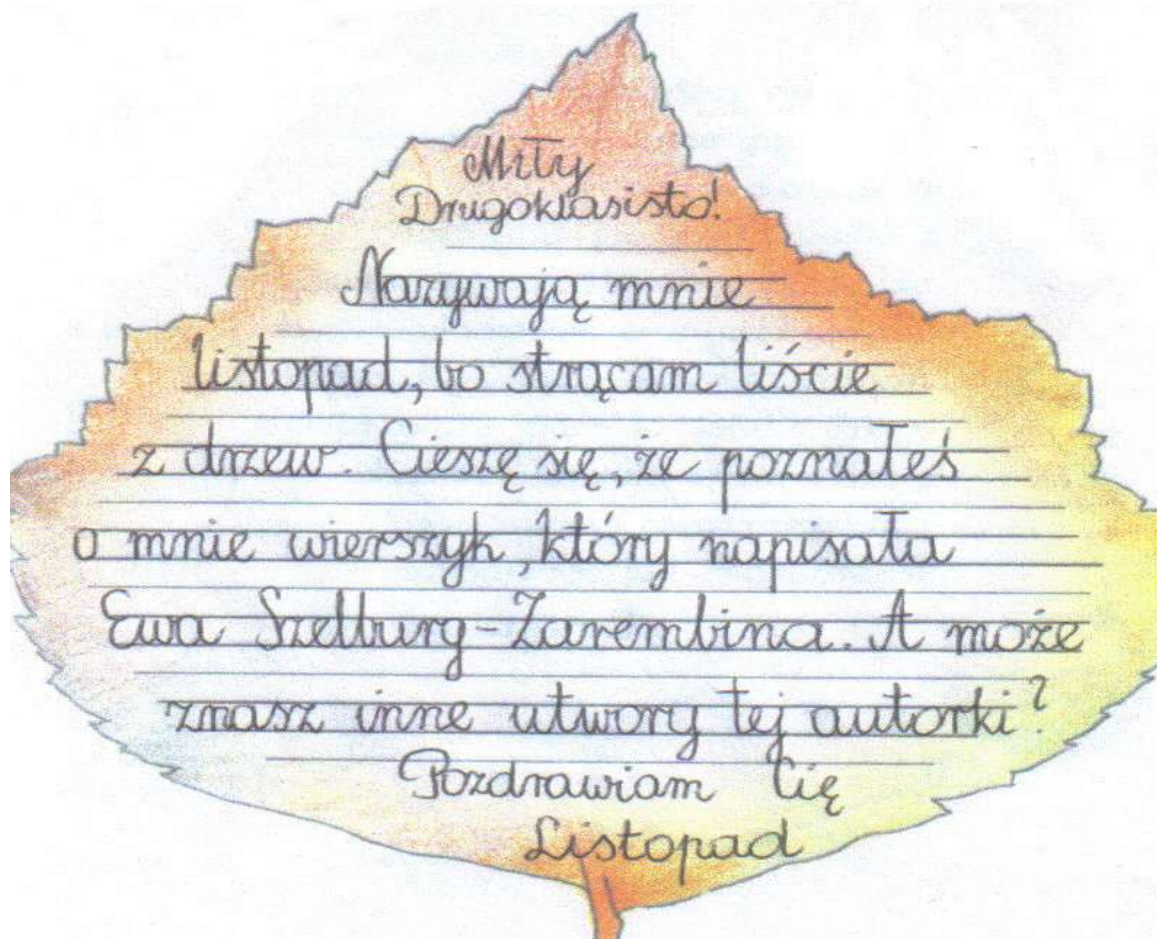 Miły
Drugoklasisto!
Nazywają mnie
listopad, bo strącam liście
z drzew. Cieszę się, że poznałeś
o mnie wierszyk, który napisała
Ewa Szelburg-Zarembina. A może
znasz inne utwory tej autorki?
Pozdrawiam Cię
Listopad